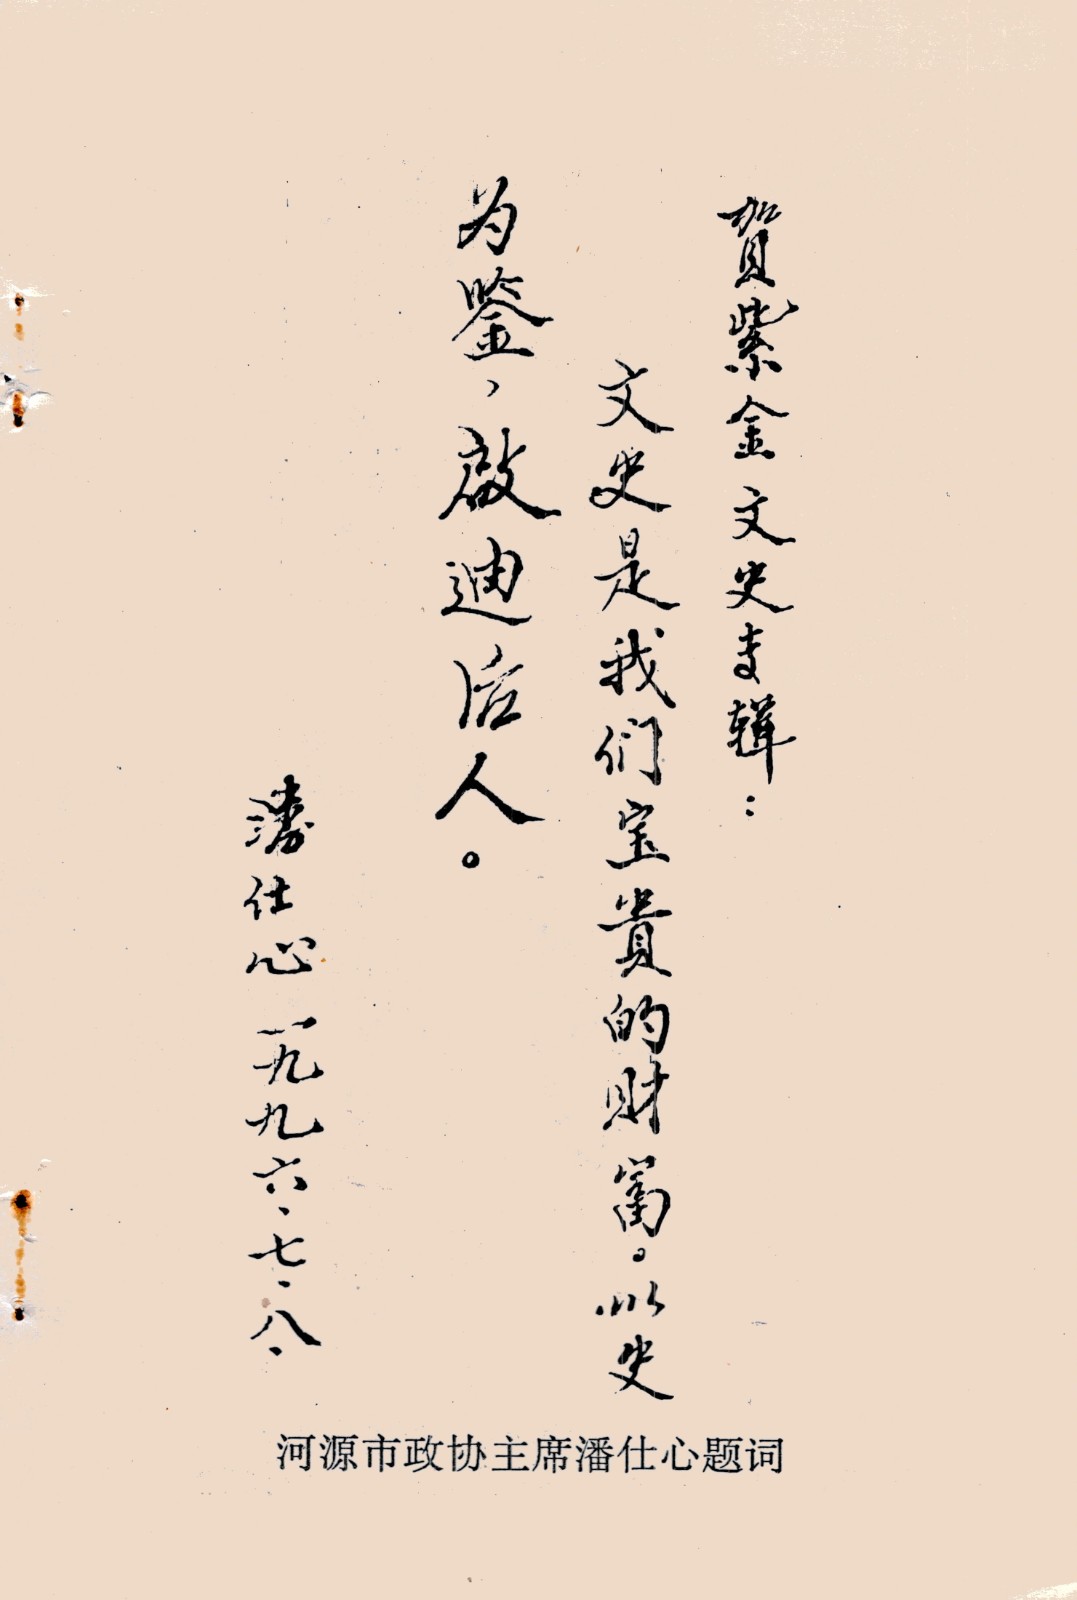 賀紫金文史专輯：
文史是我们宝貴的財富。以史
为鉴，啟迪后人。
潘仕心 一九九六、七、八、
河源市政协主席潘仕心题词